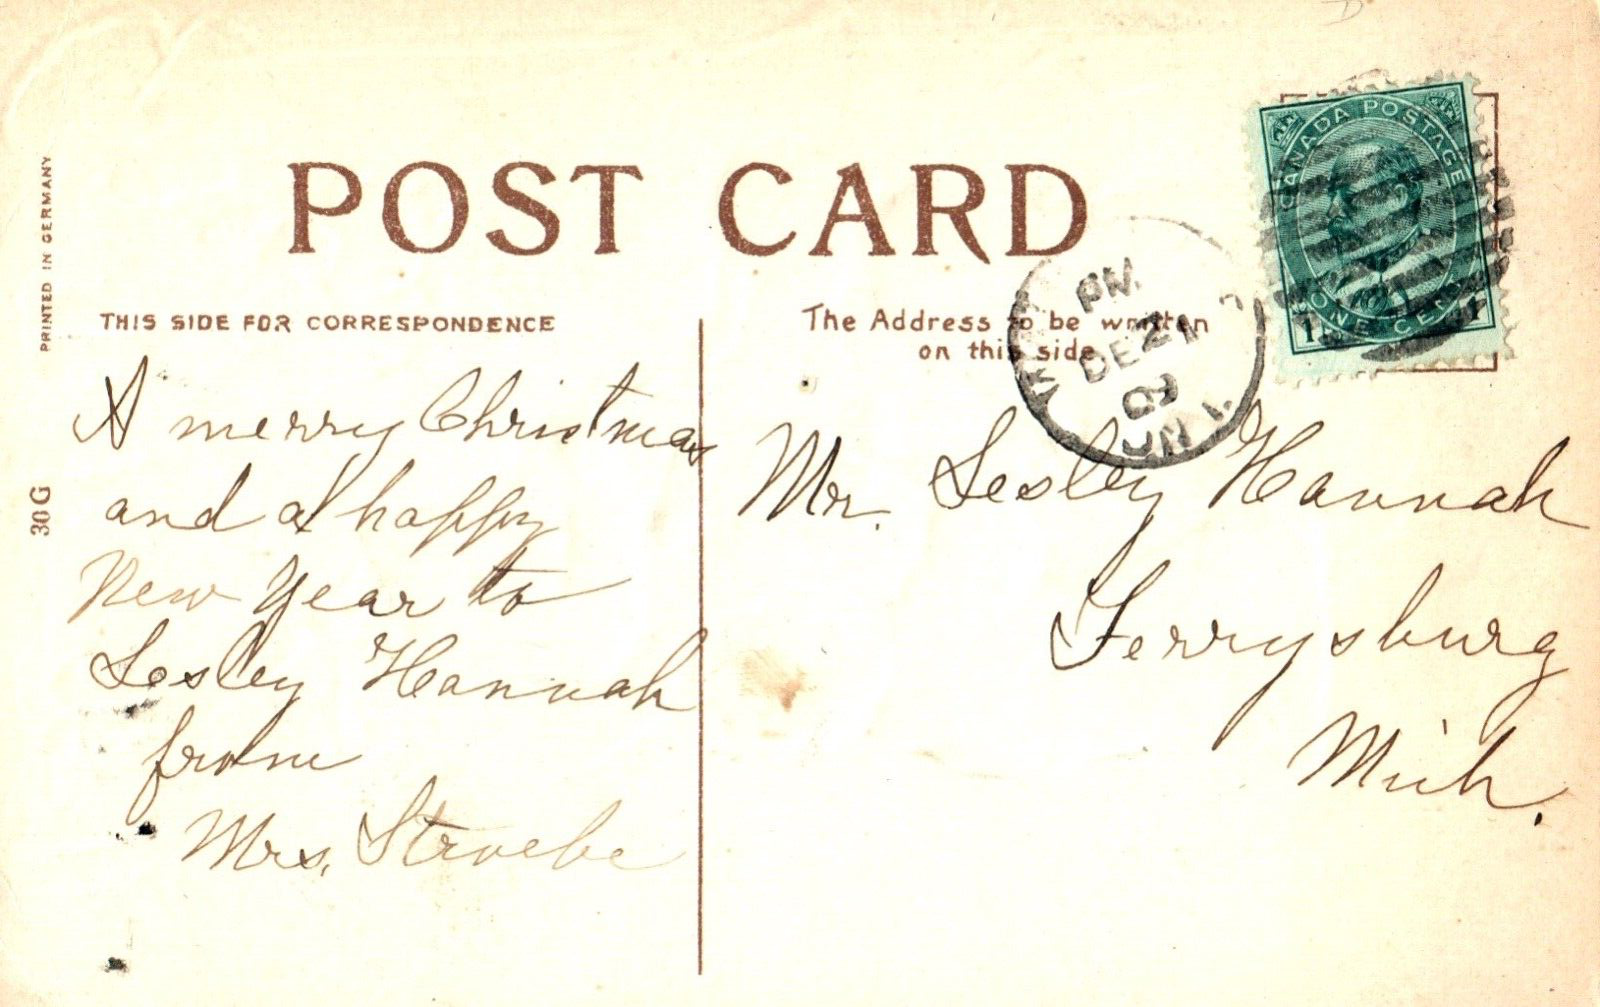 POST CARD
PRINTED IN GERMANY
30 G
THIS SIDE FOR CORRESPONDENCE
A merry Christmas
and a happy
New Year to
Lesley Hannah
from
Mrs. Stroebe
The Address to be written
on this side
Mr. Lesley Hannah
Ferrysburg
Mich.
CANADA POSTAGE
ONE CENT
1 1
PM
DE 21
09
ONT